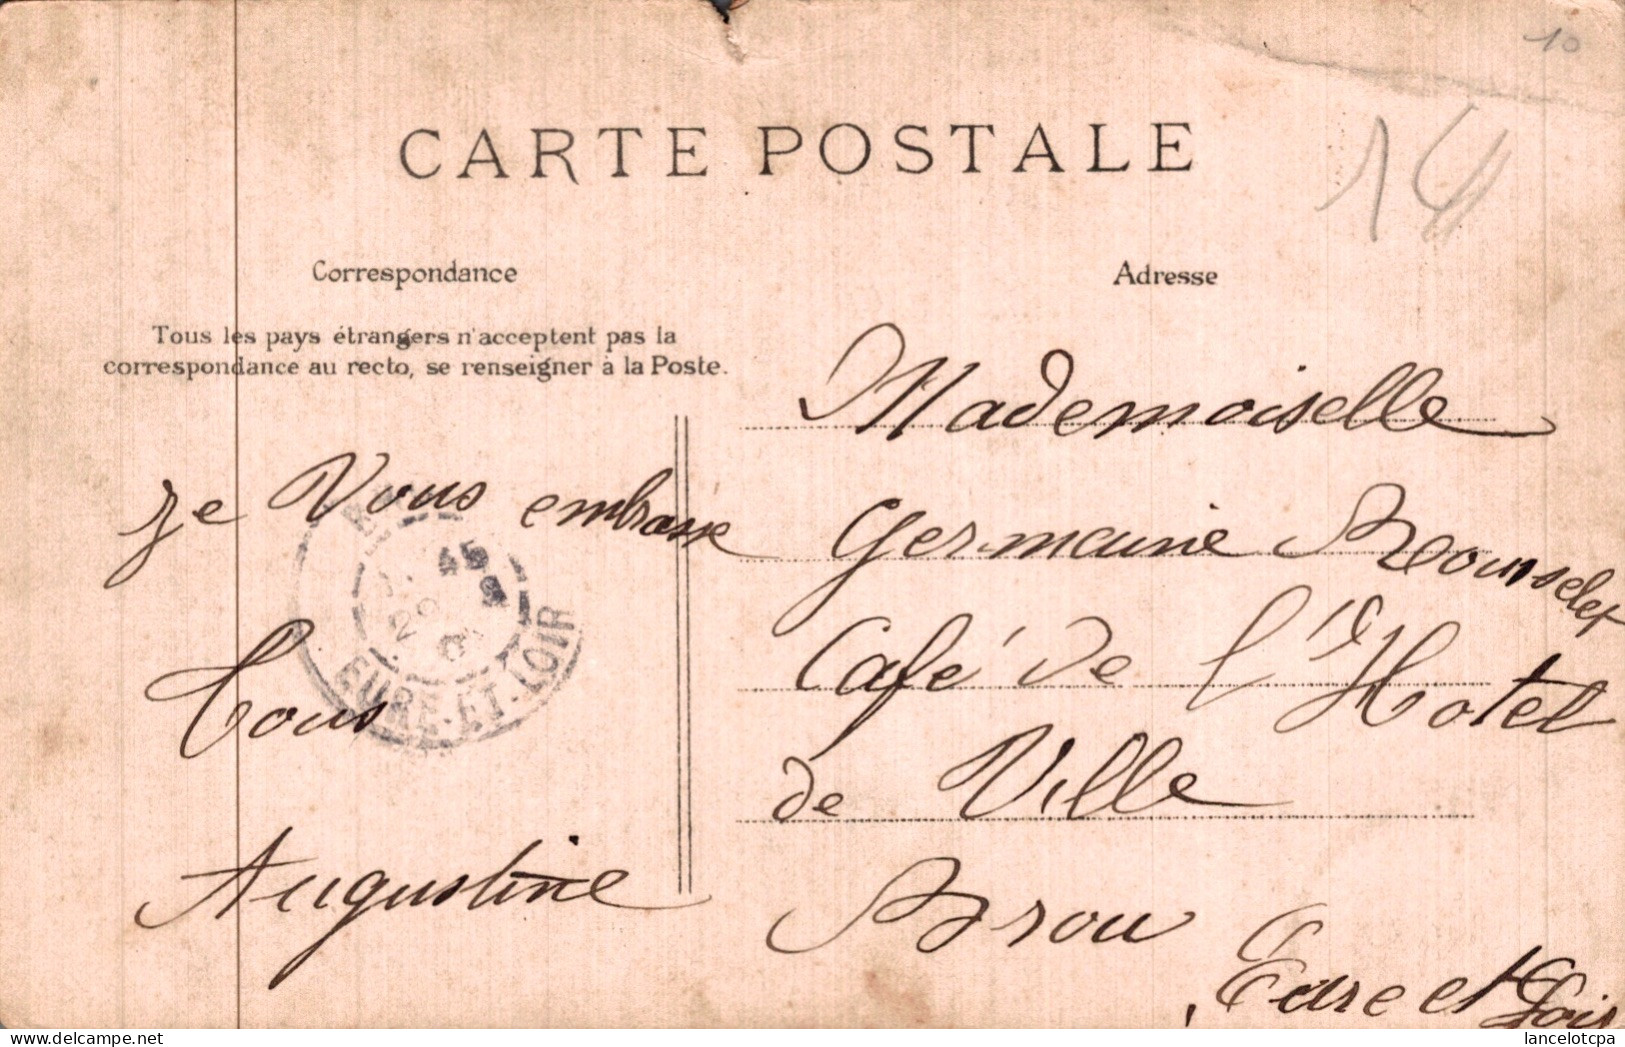 10
14
CARTE POSTALE
Correspondance
Tous les pays étrangers n'acceptent pas la
correspondance au recto, se renseigner à la Poste.
je Vous embrasse
Tous
Augustine
45
EURE-ET-LOIR
Adresse
Mademoiselle
Germaine Rousselet
Café de l'Hotel
de Ville
Brou
Eure et Loir
lancelotcpa
www.delcampe.net